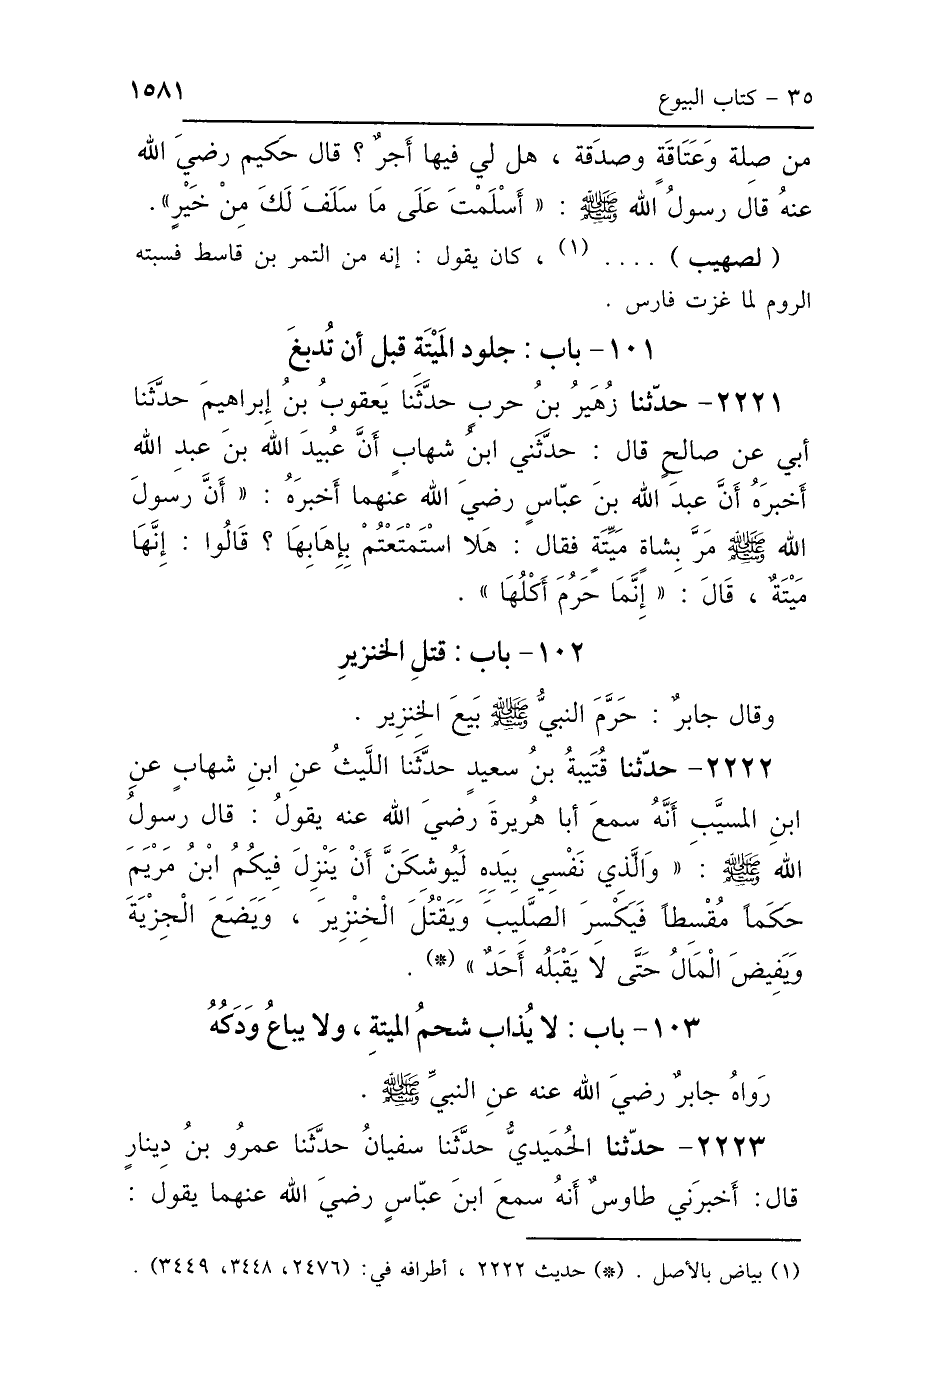 ٣٥ – كتاب البيوع ١٥٨١
من صِلة وَعَتَاقَةٍ وصدَقة ، هل لي فيها أَجرٌ ؟ قال حَكيم رضيَ الله
عنهُ قال رسولُ الله ﷺ : « أَسْلَمْتَ عَلَى مَا سَلَفَ لَكَ مِنْ خَيْرٍ» .
( لصهيب ) . . . . (١) ، كان يقول : إنه من التمر بن قاسط فسبته
الروم لما غزت فارس .
١٠١– باب : جلود المَيْتَة قبل أن تُدبغَ
٢٢٢١– حدّثنا زُهَيرُ بنُ حربٍ حدَّثَنا يَعقوبُ بنُ إبراهيمَ حدَّثَنا
أبي عن صالحٍ قال : حدَّثَني ابنُ شهابٍ أَنَّ عُبيدَ الله بنَ عبدِ الله
أخبرَهُ أنَّ عبدَ الله بنَ عبّاسٍ رضيَ الله عنهما أخبرَهُ : « أنَّ رسولَ
الله ﷺ مَرَّ بِشاةٍ مَيِّتَةٍ فقال : هَلا اسْتَمْتَعتُمْ بِإهَابِهَا ؟ قَالُوا : إِنَّهَا
مَيْتَةٌ ، قَالَ : « إِنَّمَا حَرُمَ أَكْلُهَا » .
١٠٢– باب : قتلِ الخنزيرِ
وقال جابرٌ : حَرَّمَ النبيُّ ﷺ بَيعَ الخِنزِير .
٢٢٢٢– حدّثنا قُتَيبةُ بنُ سعيدٍ حدَّثَنا الليثُ عنِ ابنِ شهابٍ عنِ
ابنِ المسيَّبِ أَنَّهُ سمعَ أبا هُريرةَ رضيَ الله عنه يقولُ : قال رسولُ
الله ﷺ : « وَالَّذِي نَفْسِي بِيَدِهِ لَيُوشكَنَّ أَنْ يَنْزِلَ فِيكُمُ ابْنُ مَرْيَمَ
حَكَماً مُقْسِطاً فَيَكْسِرَ الصَّلِيبَ وَيَقْتُلَ الْخِنْزِيرَ ، وَيَضَعَ الْجِزْيَةَ
وَيَفِيضَ الْمَالُ حَتَّى لا يَقْبَلُه أَحَدٌ » (*) .
١٠٣– باب : لا يُذاب شحمُ الميتةِ ، ولا يباعُ وَدَكُهُ
رَواهُ جابرٌ رضيَ الله عنه عنِ النبيِّ ﷺ .
٢٢٢٣– حدّثنا الحُمَيديُّ حدَّثَنا سفيانُ حدَّثَنا عمرُو بنُ دِينارٍ
قال: أَخبرَني طاوسٌ أنهُ سمعَ ابنَ عبّاسٍ رضيَ الله عنهما يقول :
(١) بياض بالأصل . (*) حديث ٢٢٢٢ ، أطرافه في: (٢٤٧٦، ٣٤٤٨، ٣٤٤٩) .